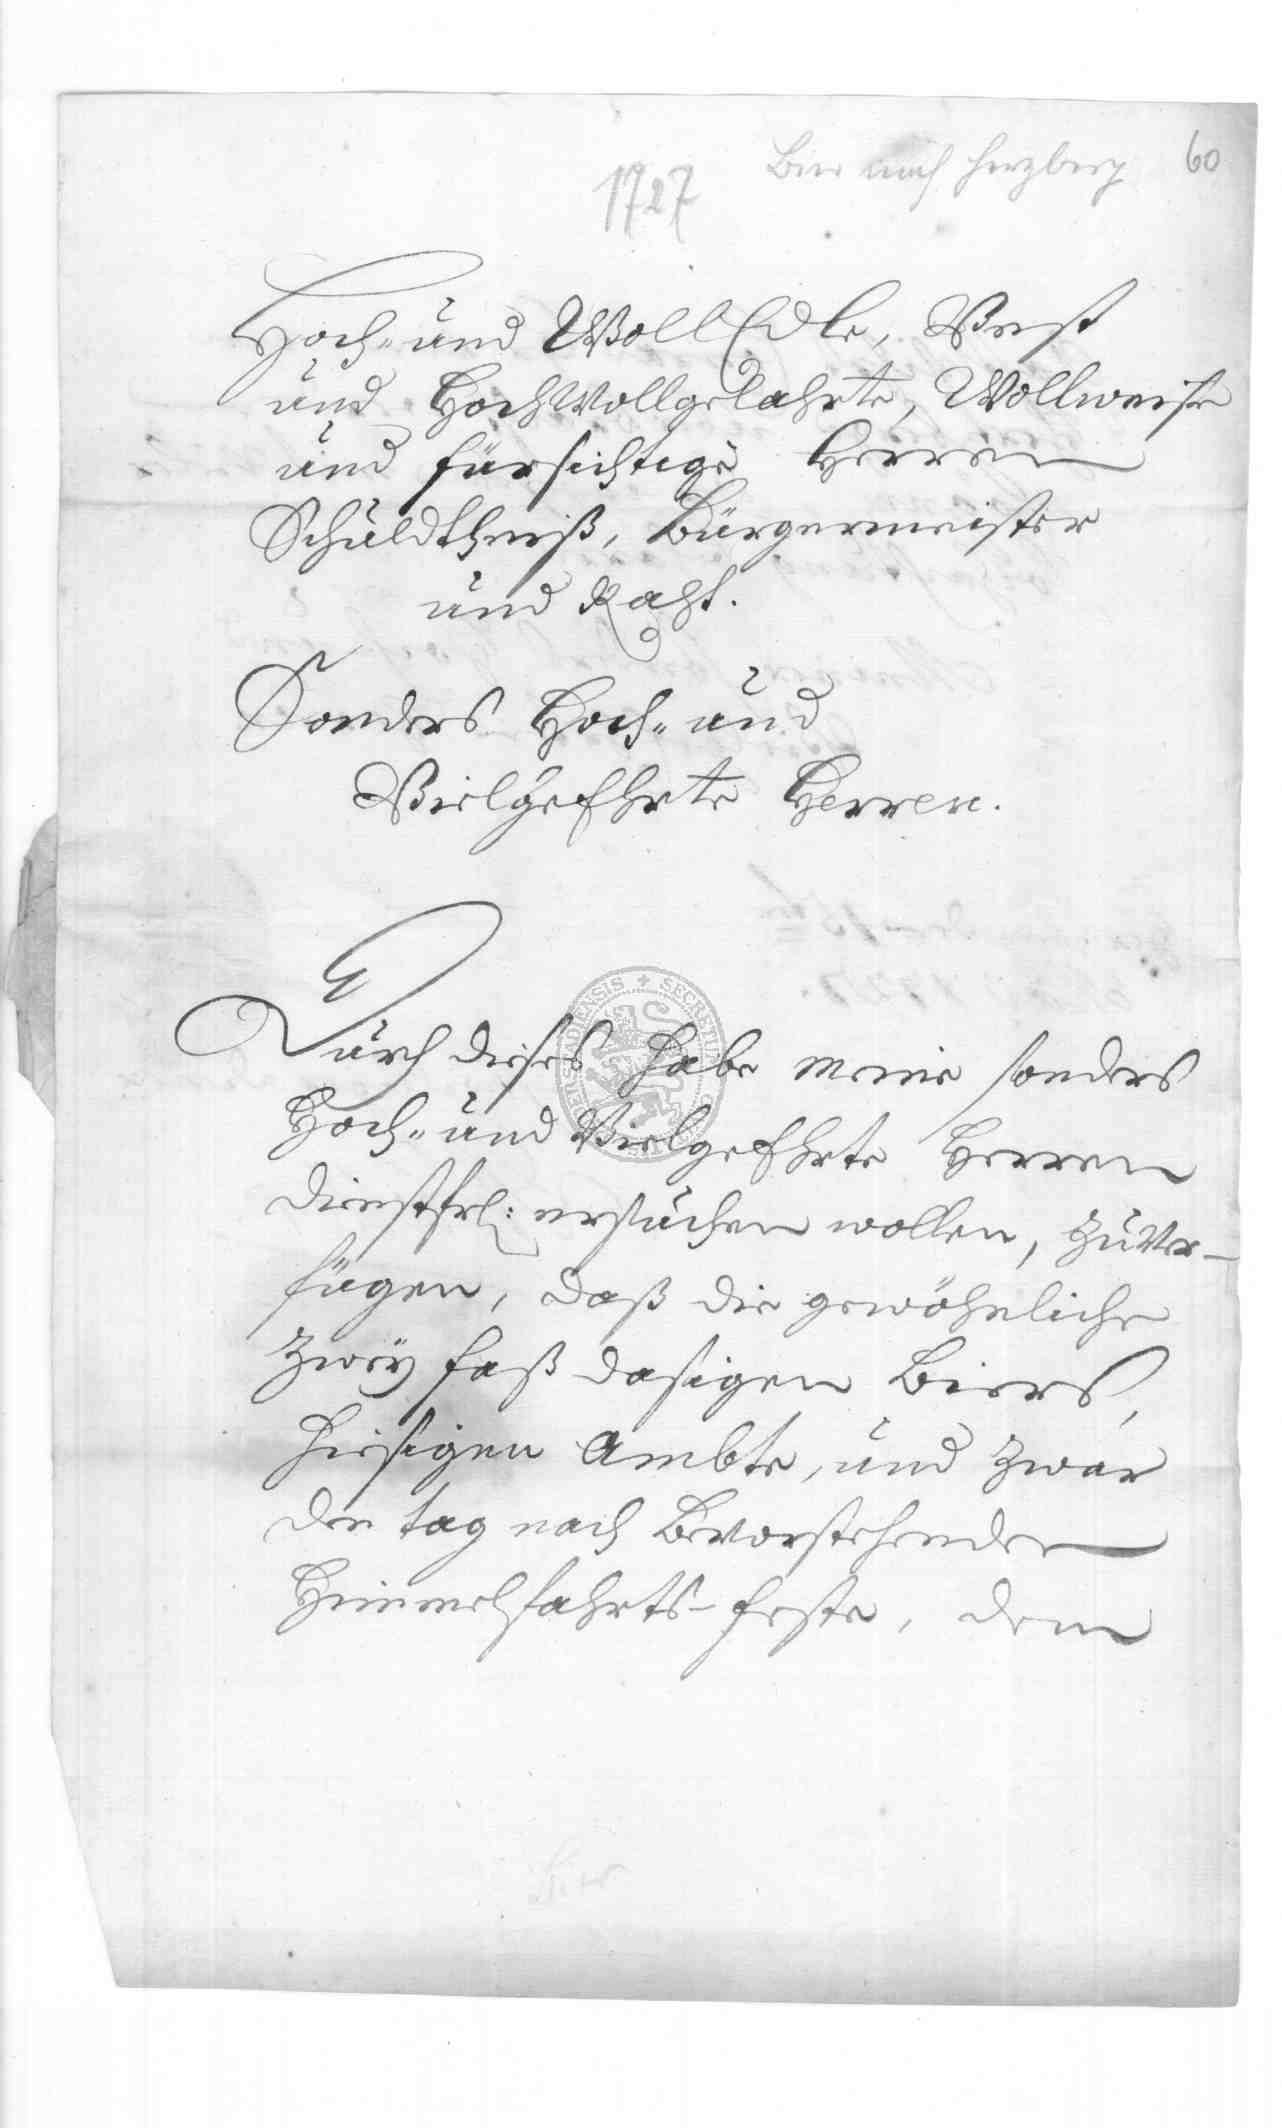 Bier nach Herzberg 60
1727
Hoch- und WollEdle, Vest
und HochWollgelahrte, Wollweise
und fürsichtige Herren
Schuldtheiß, Bürgermeister
und Raht.
Sonders Hoch- und
VielgeEhrte Herren.
Durch dieses habe meine sonders
Hoch- und VielgeEhrte Herren
dienstfrl: ersuchen wollen, zuver-
fügen, daß die gewöhnliche
Zwey faß dasigen Biers,
hiesigen Ambte, und zwar
den tag nach bevorstehenden
Himmelfahrts-feste, dem
Bier
SECRETUM